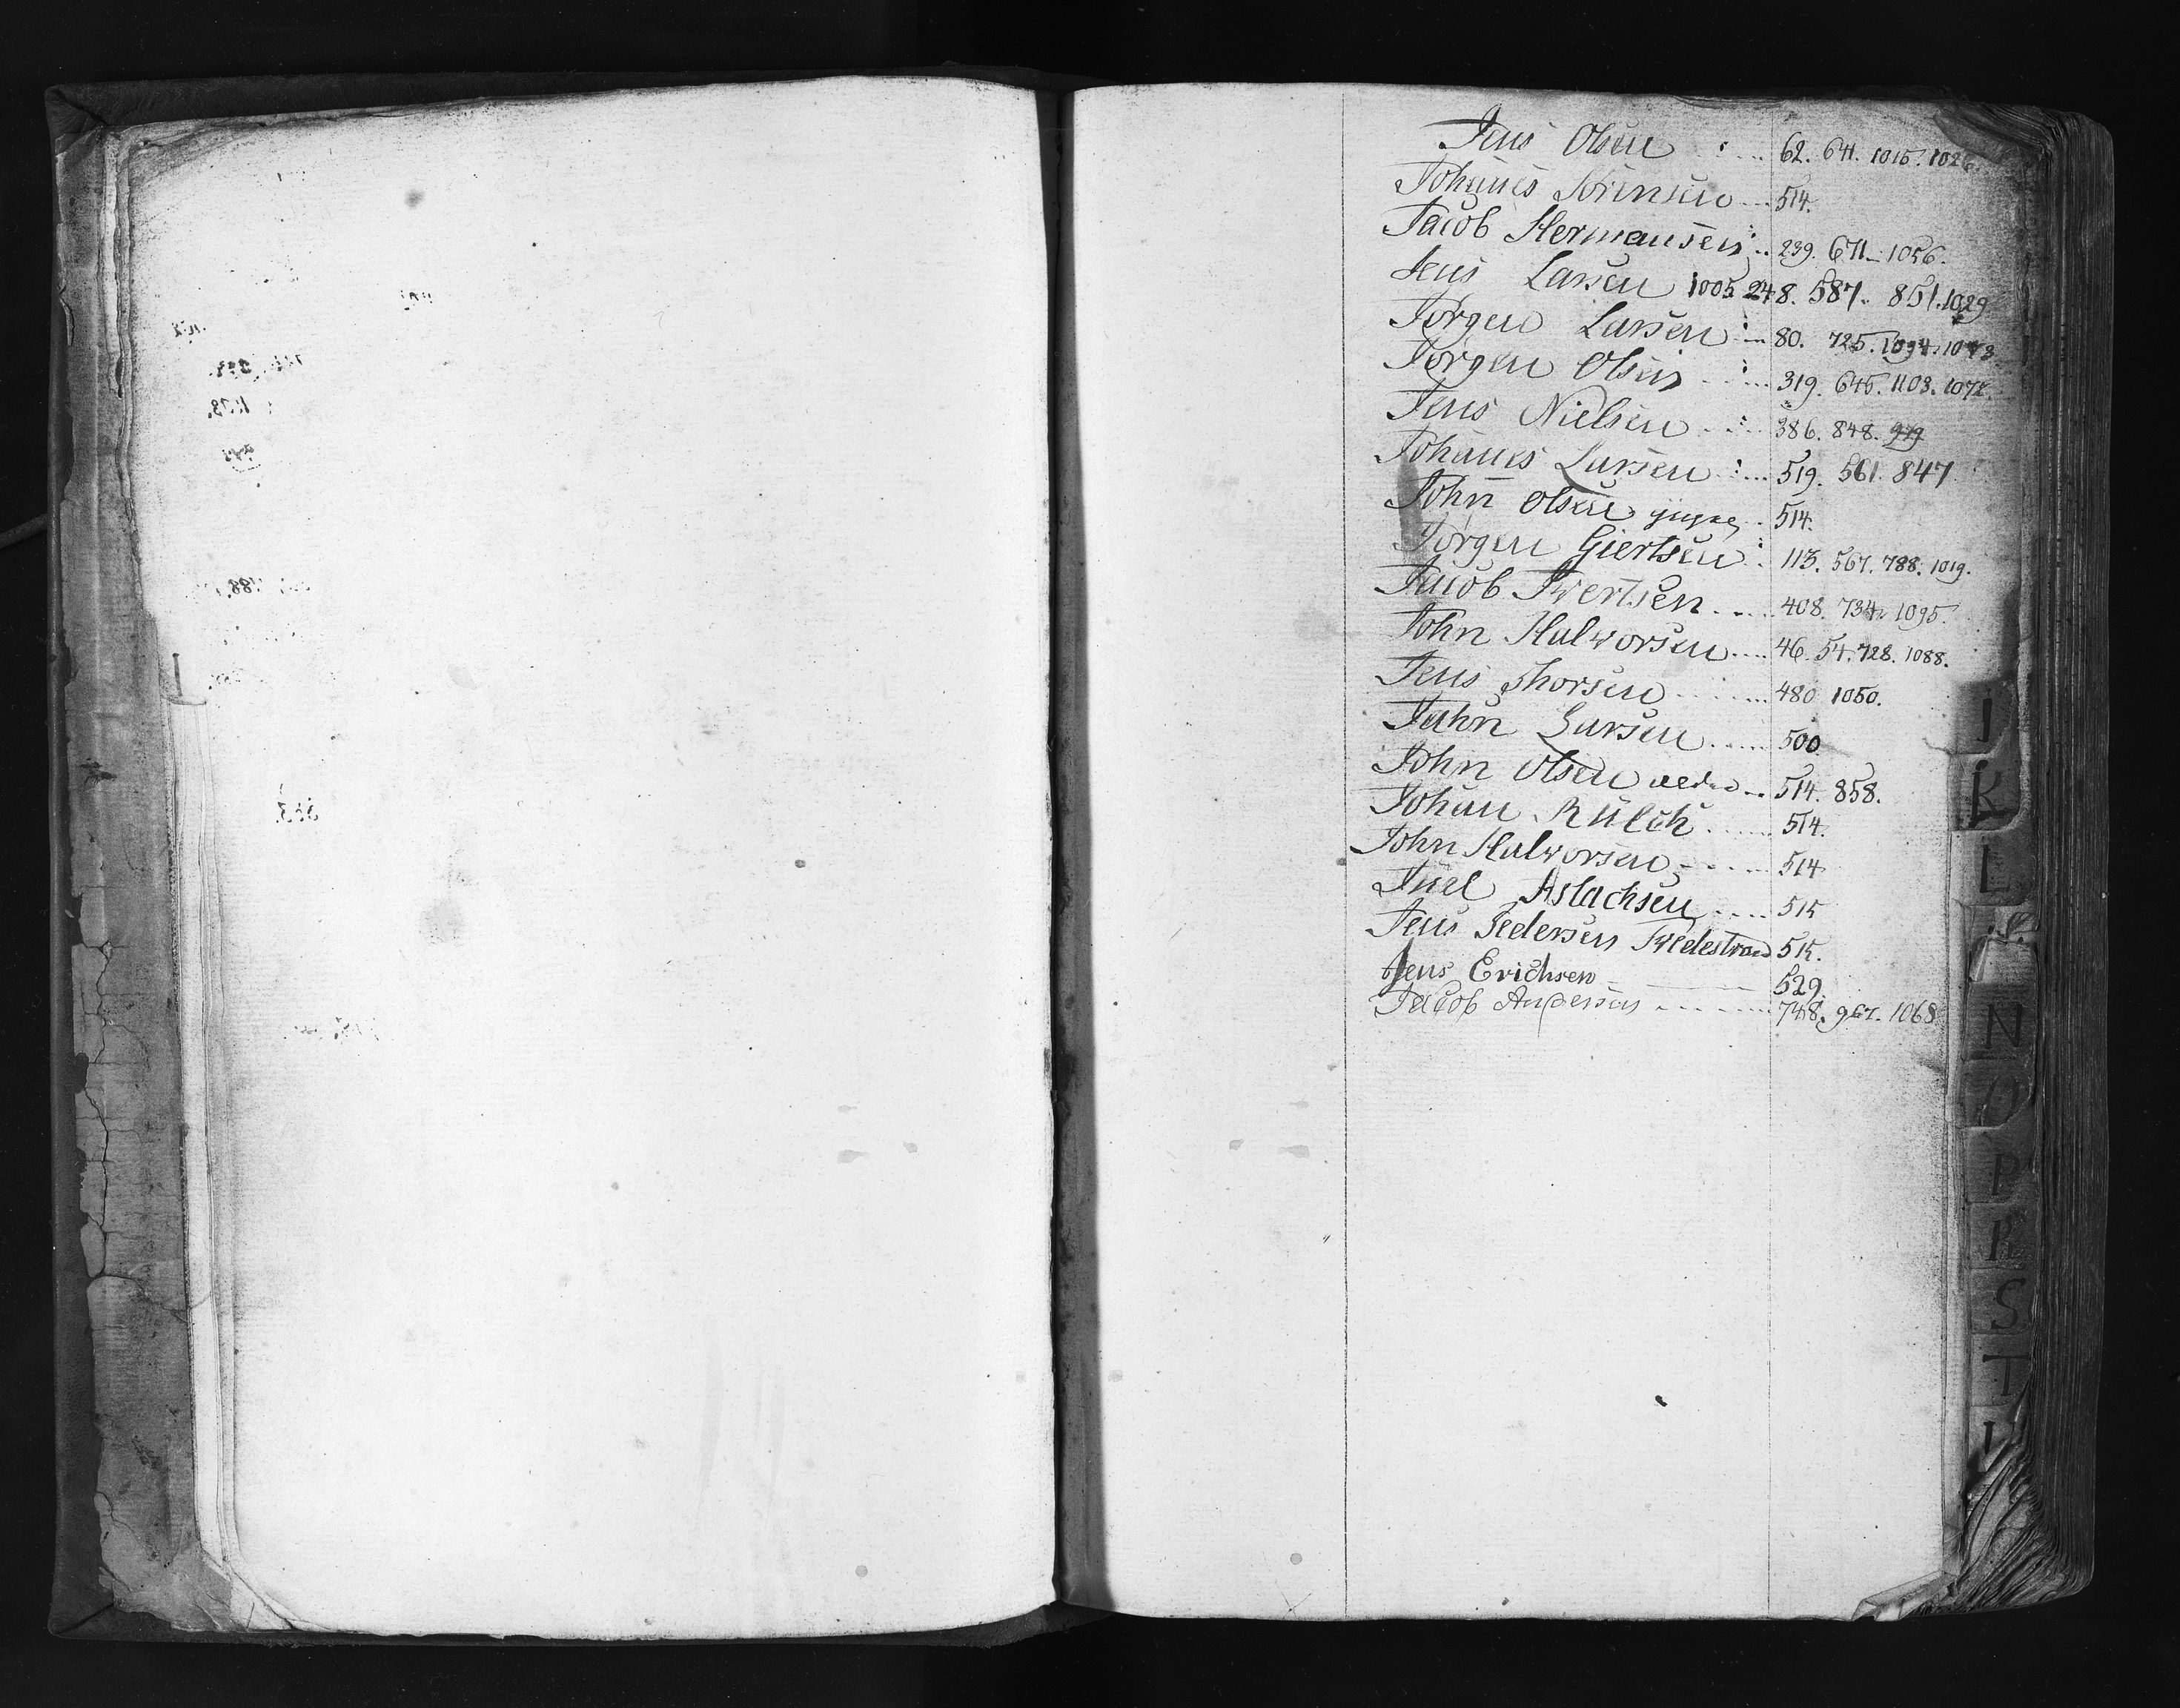 Jens Olsen . . . . 62. 641. 1015. 1026.
Johannes Sörensen . . . 514.
Jacob Hermansen . . 239. 671. 1056.
Jens Larsen 1005. 248. 587. 851. 1029
Jörgen Larsen . . . 80. 725. 1094. 1073
Jörgen Olsen . . . . 319. 645. 1103. 1072.
Jens Nielsen . . . . 386. 848. 979
Johannes Larsen . . . 519. 561. 847
John Olsen yngre . 514.
Jörgen Giertsen . 113. 567. 788. 1019.
Jacob Iwertsen . . . . 408. 734. 1095.
John Halworsen . . . . 46. 54. 728. 1088.
Jens Thorsen . . . . 480 1050.
Jahn Larsen . . . . . 500.
John Olsen ældre . . . 514. 858.
Johan Külch . . . . . 514.
John Halworsen . . . . 514
Juel Aslachsen . . . . 515
Jens Pedersen Twedestrand 515.
Jens Erichsen 529.
Jacob Andersen . . . . . 748. 967. 1068
I
K
L
N
O
P
R
S
T